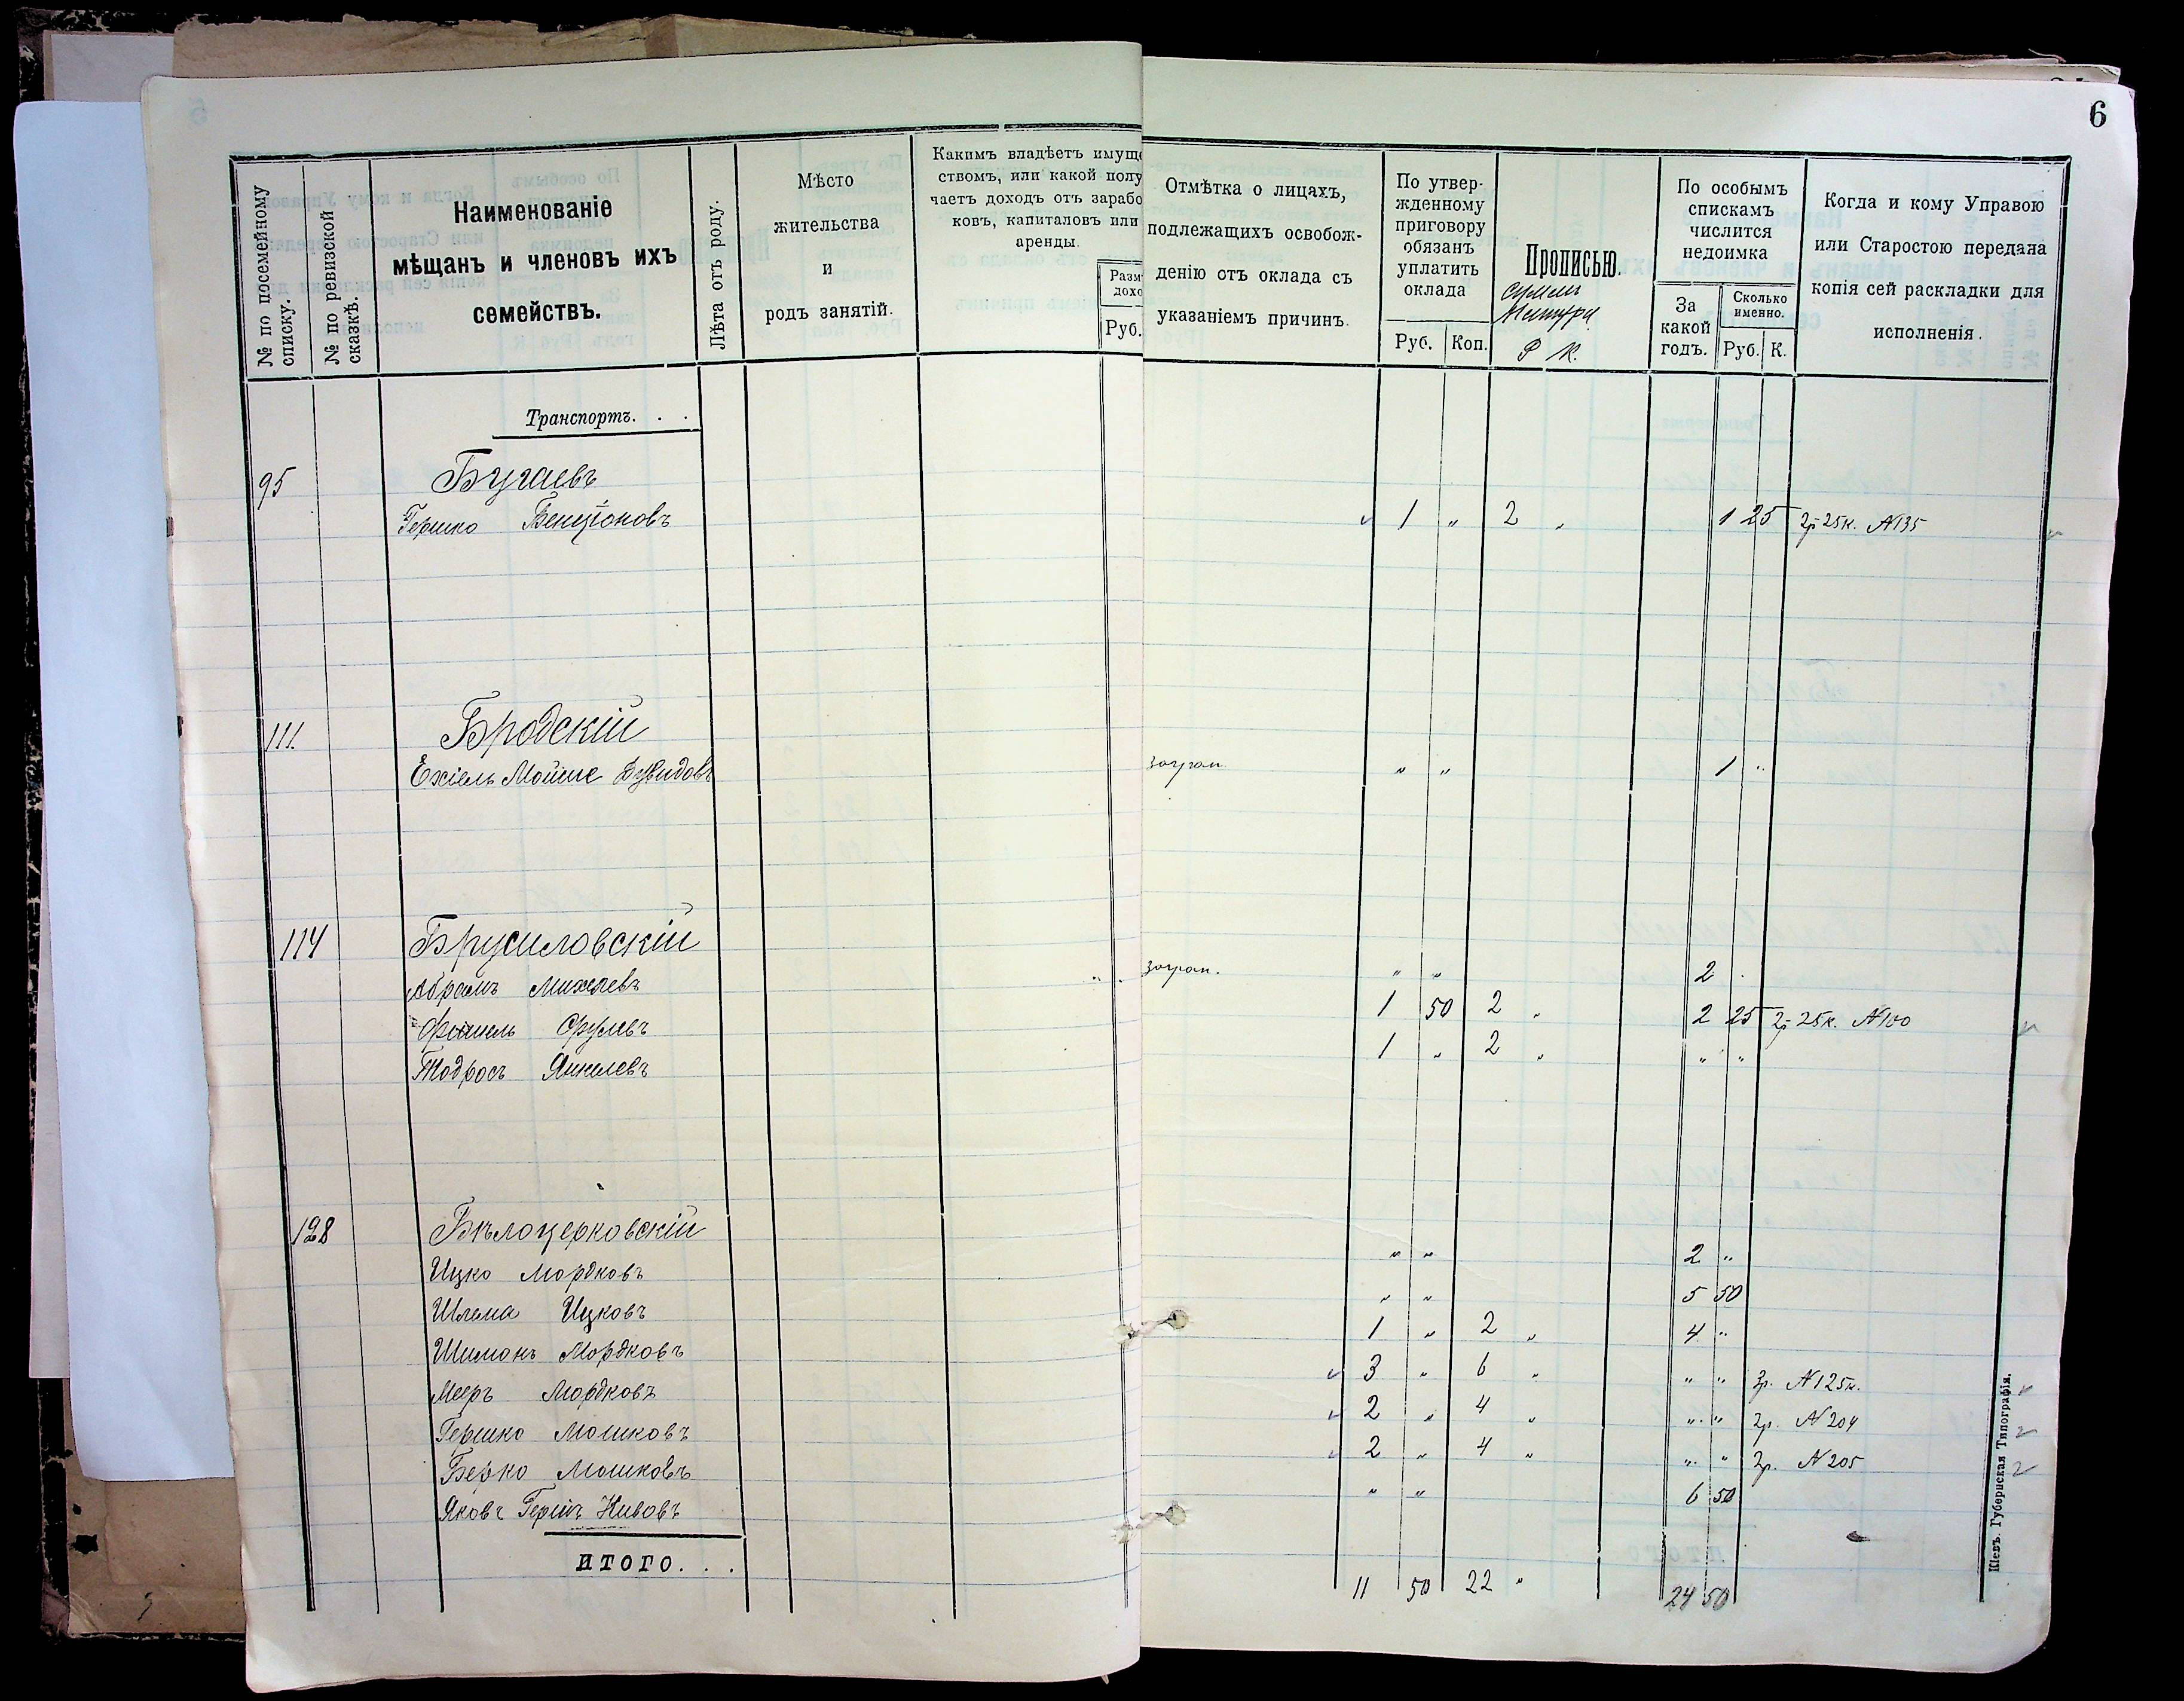 6
№ по посемейному списку.
№ по ревизской сказкѣ.
Наименованіе
мѣщанъ и членовъ ихъ
семействъ.
Лѣта отъ роду.
Мѣсто
жительства
и
родъ занятій.
Какимъ владѣетъ имуще
ствомъ, или какой полу
чаетъ доходъ отъ зарабо
ковъ, капиталовъ или
аренды.
Разм
дохо
Руб.
Отмѣтка о лицахъ,
подлежащихъ освобож-
денію отъ оклада съ
указаніемъ причинъ.
По утвер-
жденному
приговору
обязанъ
уплатить
оклада
Руб. Коп.
Прописью.
Р К.
По особымъ
спискамъ
числится
недоимка
За
какой
годъ.
Сколько
именно.
Руб. К.
Когда и кому Управою
или Старостою передана
копія сей раскладки для
исполненія.
Транспортъ. . .
95 Бугаевъ
Гершко Бенціоновъ 1 " 2 " 1 25 2р 25к. №135
111. Бродскій
Ехіель Мойше Дувидовъ загран. " " 1 "
114 Брусиловскій
Абрамъ Михелевъ загран. " " 2
Фишель Срулевъ 1 50 2 " 2 25 2р 25к. №150
Тодросъ Янкелевъ 1 " 2 " " "
128 Бѣлоцерковскій
Ицко Мордковъ " " 2 "
Шлема Ицковъ " " 5 50
Шимонъ Мордковъ 1 " 2 " 4 "
Мееръ Мордковъ 3 " 6 " " " 3р. №125к.
Гершко Мошковъ 2 " 4 " " " 2р. №204
Берко Мошковъ 2 " 4 " " " 2р. №205
Яковъ Гершъ " " 6 50
ИТОГО. . . 11 50 22 " 24 50
Кіевъ. Губернская Типографія.